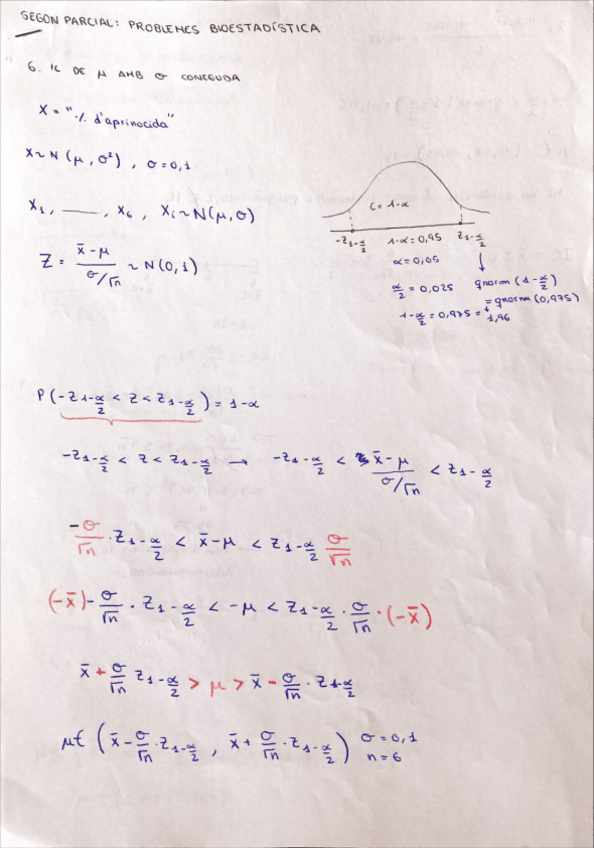 SEGON PARCIAL: PROBLEMES BIOESTADÍSTICA
6. IC DE μ AMB σ CONEGUDA
X = "·/. d'aprinocida"
X ~ N (μ, σ²) , σ = 0,1
X₁, ——, X₆ , Xᵢ ~ N(μ, σ)
Z = (x̄ - μ) / (σ/√n) ~ N(0,1)
C = 1-α
-Z₁-α/2 1-α = 0,95 Z₁-α/2
α = 0,05
α/2 = 0,025 qnorm (1-α/2)
= qnorm (0,975)
1-α/2 = 0,975 = 1,96
P (-Z₁-α/2 < Z < Z₁-α/2) = 1-α
-Z₁-α/2 < Z < Z₁-α/2 → -Z₁-α/2 < (x̄ - μ) / (σ/√n) < Z₁-α/2
-σ/√n · Z₁-α/2 < x̄ - μ < Z₁-α/2 σ/√n
(-x̄) - σ/√n · Z₁-α/2 < -μ < Z₁-α/2 · σ/√n · (-x̄)
x̄ + σ/√n Z₁-α/2 > μ > x̄ - σ/√n · Z₁-α/2
μ ∈ (x̄ - σ/√n · Z₁-α/2 , x̄ + σ/√n · Z₁-α/2) σ = 0,1
n = 6